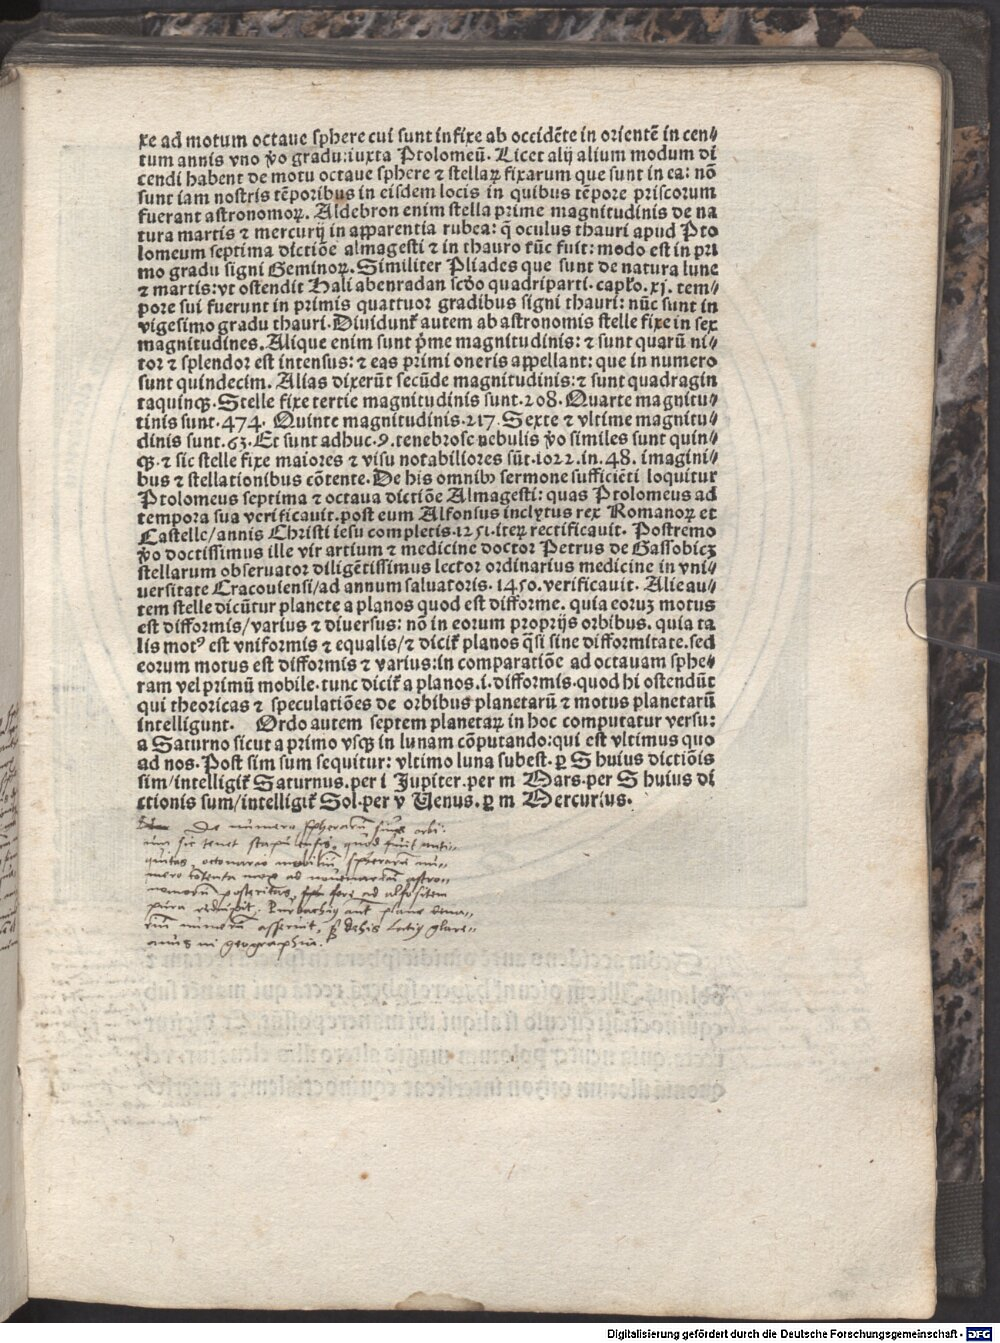 xe ad motum octaue sphere cui sunt infixe ab occidēte in orientē in cen⸗
tum annis vno ṽo gradu:iuxta Ptolomeū. Licet alij alium modum di
cendi habent de motu octaue sphere ⁊ stellaꝝ fixarum que sunt in ea: nō
sunt iam nostris tēporibus in eisdem locis in quibus tēpore priscorum
fuerant astronomoꝝ. Aldebron enim stella prime magnitudinis de na
tura martis ⁊ mercurij in apparentia rubea: q̄ oculus thauri apud Pto
lomeum septima dictiōe almagesti ⁊ in thauro tūc fuit: modo est in pri
mo gradu signi Geminoꝝ. Similiter Pliades que sunt de natura lune
⁊ martis:vt ostendit Hali abenradan scd̄o quadriparti. cap̄lo. xj. tem⸗
pore sui fuerunt in primis quattuor gradibus signi thauri: nūc sunt in
vigesimo gradu thauri. Diuidunt̄ autem ab astronomis stelle fixe in sex
magnitudines. Alique enim sunt p̄me magnitudinis: ⁊ sunt quarū ni⸗
tor ⁊ splendor est intensus: ⁊ eas primi oneris appellant: que in numero
sunt quindecim. Alias dixerūt secūde magnitudinis:⁊ sunt quadragin
taquinqꝫ. Stelle fixe tertie magnitudinis sunt. 208. Quarte magnitu⸗
tinis sunt. 474. Quinte magnitudinis. 217. Sexte ⁊ vltime magnitu⸗
dinis sunt. 63. Et sunt adhuc. 9. tenebrose nebulis ṽo similes sunt quin⸗
qꝫ. ⁊ sic stelle fixe maiores ⁊ visu notabiliores sūt. 1022. in. 48. imagini⸗
bus ⁊ stellationibus cōtente. De his omnibꝫ sermone sufficiēti loquitur
Ptolomeus septima ⁊ octaua dictiōe Almagesti: quas Ptolomeus ad
tempora sua verificauit. post eum Alfonsus inclytus rex Romanoꝝ et
Castelle/annis Christi iesu completis. 1251. iteꝝ rectificauit. Postremo
ṽo doctissimus ille vir artium ⁊ medicine doctor Petrus de Gassobicz
stellarum obseruator diligētissimus lector ordinarius medicine in vni⸗
uersitate Cracouiensi/ad annum saluatoris. 1450. verificauit. Alie au⸗
tem stelle dicūtur planete a planos quod est difforme. quia eoruꝫ motus
est difformis/varius ⁊ diuersus: nō in eorum proprijs orbibus. quia ta
lis motꝰ est vniformis ⁊ equalis/⁊ dicit̄ planos q̄si sine difformitate. sed
eorum motus est difformis ⁊ varius:in comparatiōe ad octauam sphe⸗
ram vel primū mobile. tunc dicit̄ a planos. i. difformis. quod hi ostendūt
qui theoricas ⁊ speculatiōes de orbibus planetarū ⁊ motus planetarū
intelligunt. Ordo autem septem planetaꝝ in hoc computatur versu:
a Saturno sicut a primo vsqꝫ in lunam cōputando:qui est vltimus quo
ad nos. Post sim sum sequitur: vltimo luna subest. ꝑ S huius dictiōis
sim/intelligit̄ Saturnus. per i Jupiter. per m Mars. per S huius di
ctionis sum/intelligit̄ Sol. per v Uenus. ꝑ m Mercurius.
De numero spherarū siue orbi⸗
um sic tenet stapulensis, quod fuit anti⸗
quitas octonario mobiliū spherarū nu⸗
mero contenta mox ad nouenariū astro⸗
nomorū posteritas, fere ad
pura Purbachiꝰ aut plane dena⸗
riū numerū asseruit, de his glare⸗
anus in geographia.
Digitalisierung gefördert durch die Deutsche Forschungsgemeinschaft - DFG